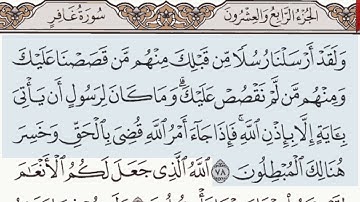 الجزء الرابع والعشرون سورة غافر
وَلَقَدْ أَرْسَلْنَا رُسُلًا مِّن قَبْلِكَ مِنْهُم مَّن قَصَصْنَا عَلَيْكَ
وَمِنْهُم مَّن لَّمْ نَقْصُصْ عَلَيْكَ ۗ وَمَا كَانَ لِرَسُولٍ أَن يَأْتِىَ
بِـَٔايَةٍ إِلَّا بِإِذْنِ ٱللَّهِ ۚ فَإِذَا جَآءَ أَمْرُ ٱللَّهِ قُضِىَ بِٱلْحَقِّ وَخَسِرَ
هُنَالِكَ ٱلْمُبْطِلُونَ ٧٨ ٱللَّهُ ٱلَّذِى جَعَلَ لَكُمُ ٱلْأَنْعَٰمَ